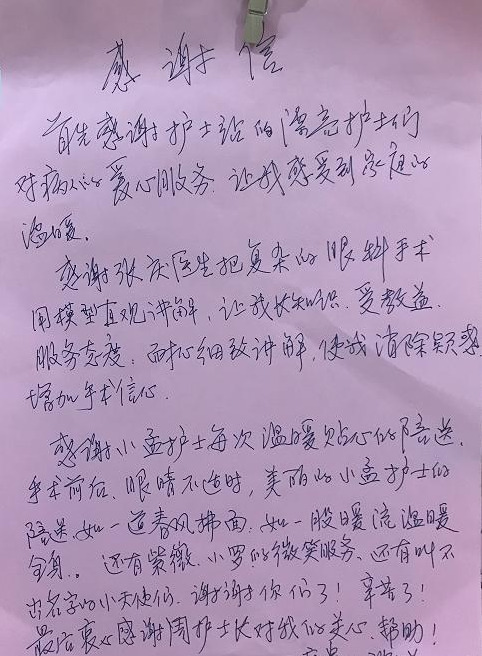 感谢信
首先感谢护士站的漂亮护士们
对病人的爱心服务.让我感受到家庭的
温暖.
感谢张庆医生把复杂的眼科手术
用模型直观讲解,让我长知识.受教益.
服务态度:耐心细致讲解,使我消除疑惑
增加手术信心.
感谢小孟护士每次温暖贴心的陪送.
手术前后.眼睛不适时,美丽的小孟护士的
陪送.如一道春风拂面.如一股暖流温暖
全身.还有紫薇.小罗的微笑服务.还有叫不
出名字的小天使们.谢谢你们了!辛苦了!
最后衷心感谢周护士长对我们的关心.帮助!